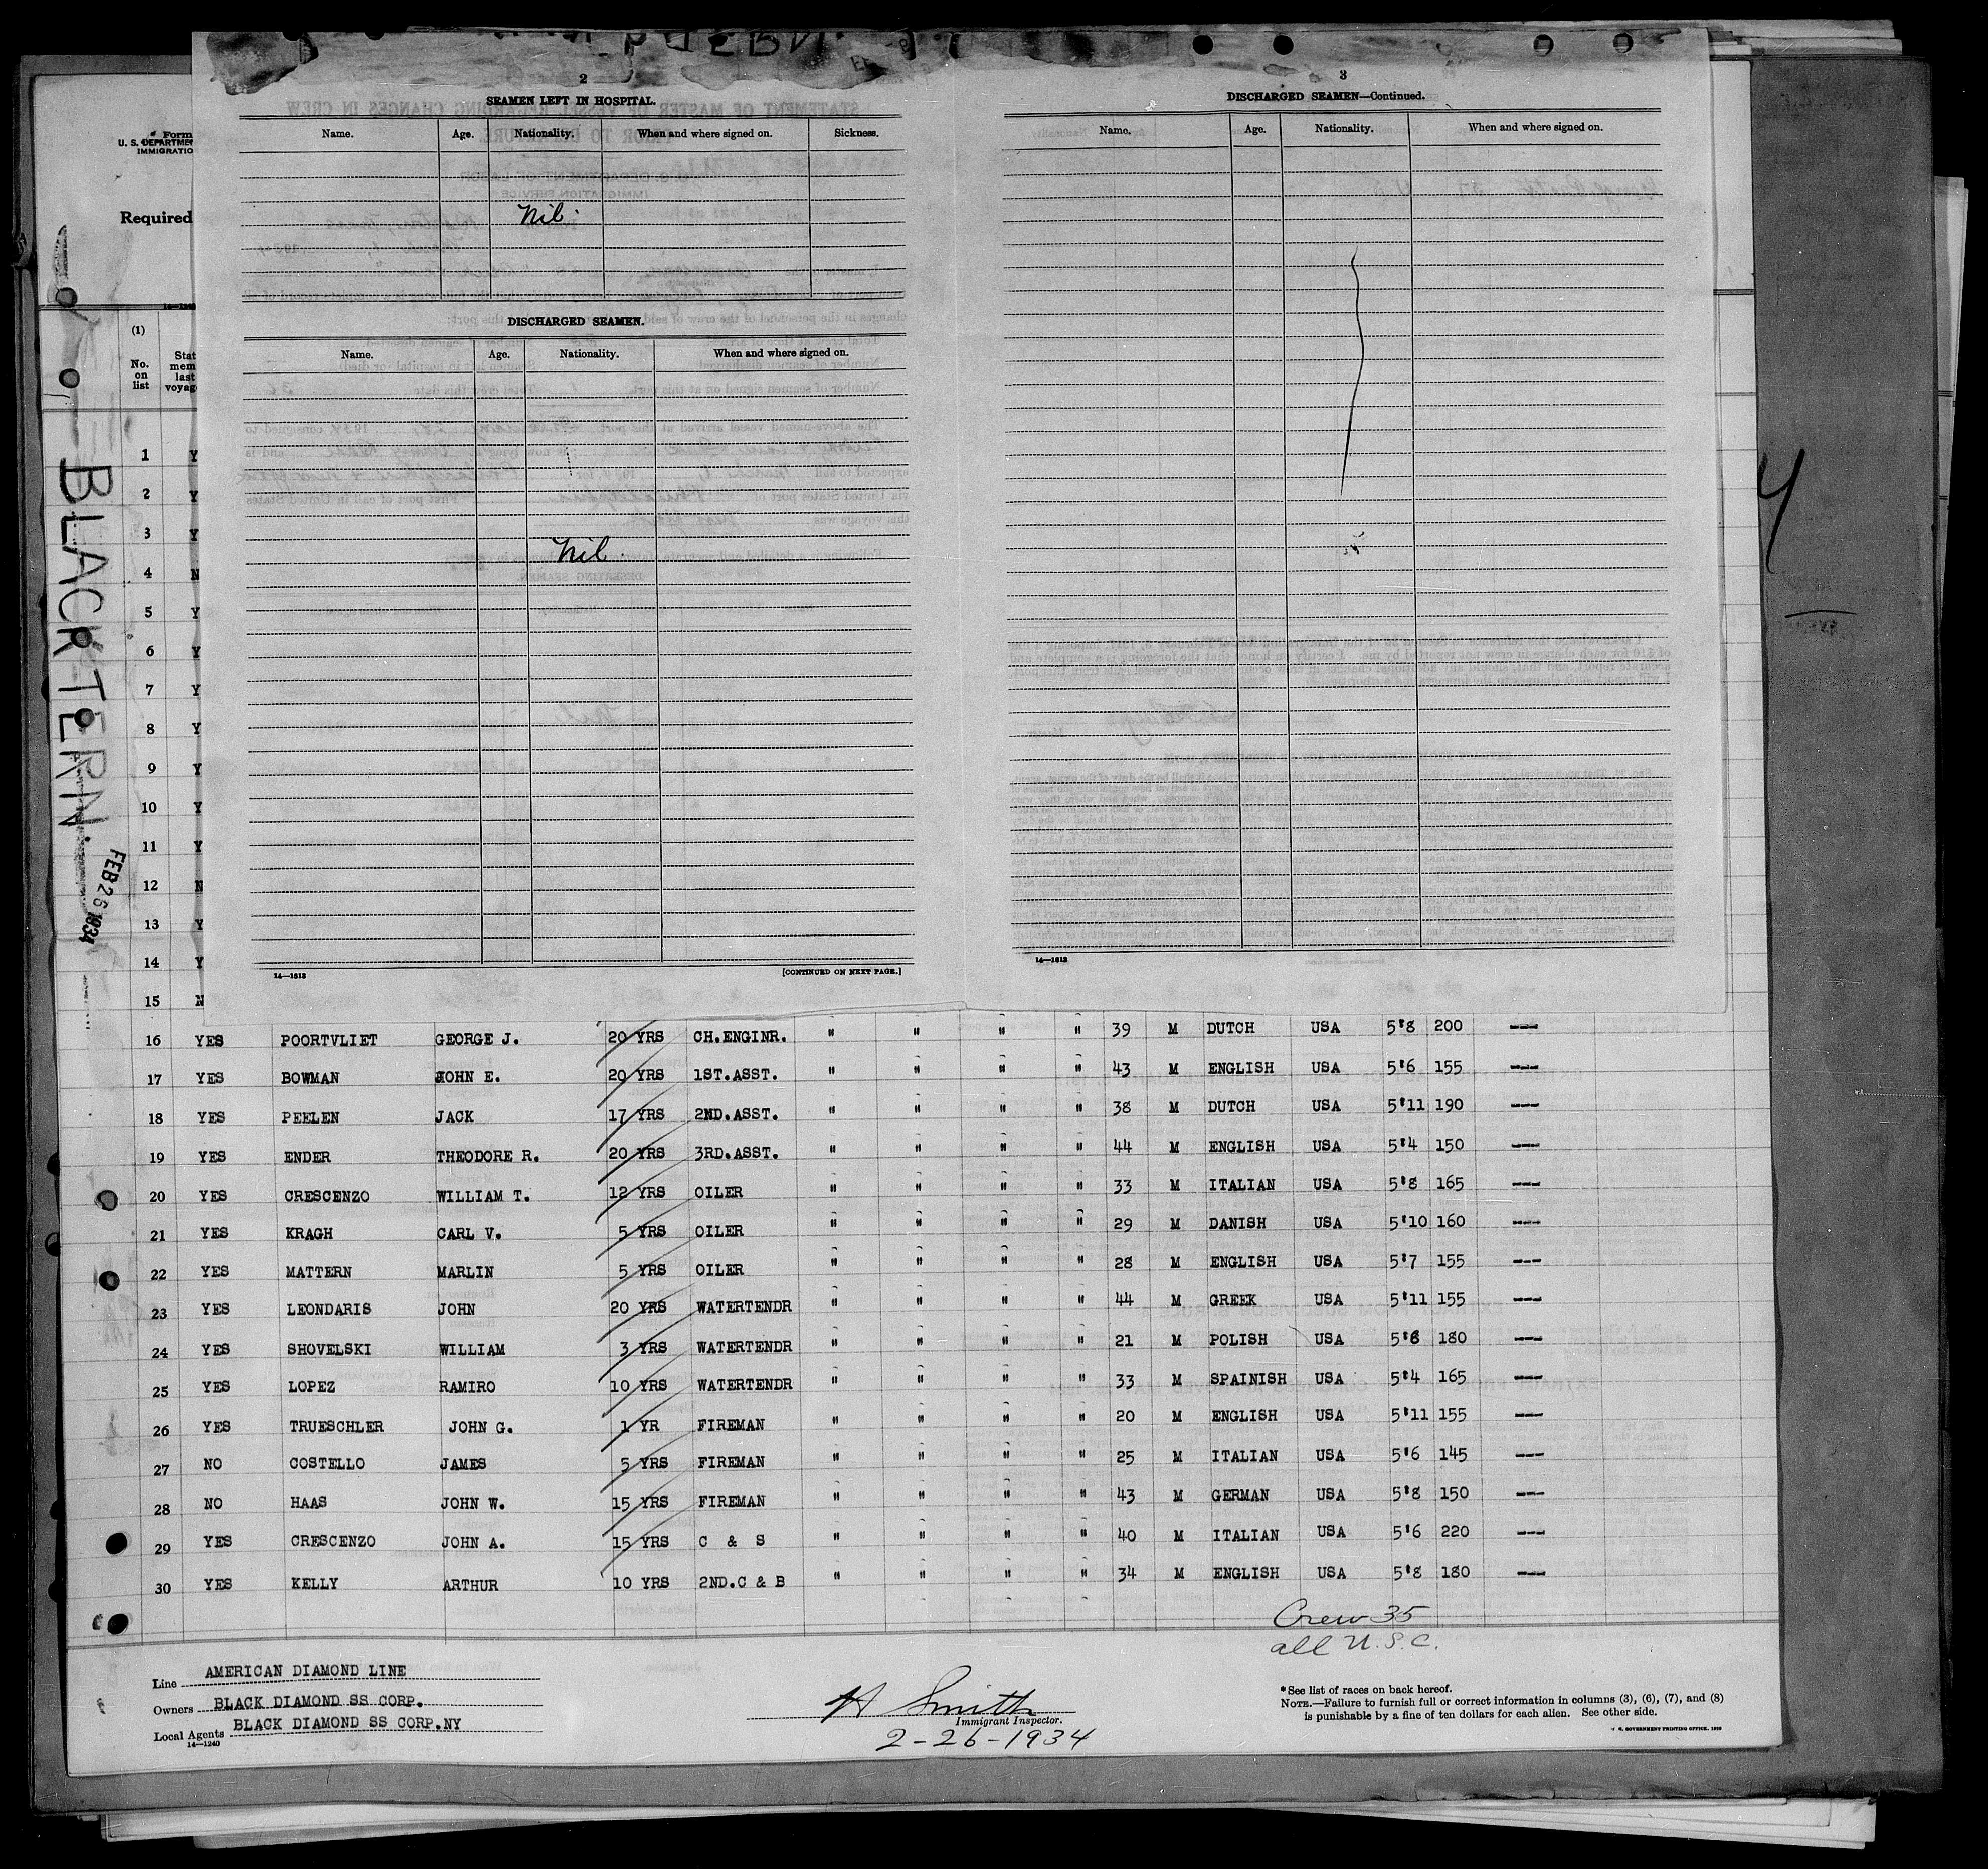 2
SEAMEN LEFT IN HOSPITAL.
Name. Age. Nationality. When and where signed on. Sickness.
Nil.
DISCHARGED SEAMEN.
Name. Age. Nationality. When and where signed on.
Nil.
14—1613 [CONTINUED ON NEXT PAGE.]
3
DISCHARGED SEAMEN—Continued.
Name. Age. Nationality. When and where signed on.
14—1613
Form
U. S. DEPARTMEN
IMMIGRATIO
Required
(1)
No. on list
Stat mem last voyag
BLACK TERN.
FEB 26 1934
1 Y
2 Y
3 Y
4 N
5 Y
6 Y
7 Y
8 Y
9 Y
10 Y
11 Y
12 N
13 Y
14 Y
15 N
16 YES POORTVLIET GEORGE J. 20 YRS CH.ENGINR. " " " " 39 M DUTCH USA 5'8 200 ---
17 YES BOWMAN JOHN E. 20 YRS 1ST.ASST. " " " " 43 M ENGLISH USA 5'6 155 ---
18 YES PEELEN JACK 17 YRS 2ND.ASST. " " " " 38 M DUTCH USA 5'11 190 ---
19 YES ENDER THEODORE R. 20 YRS 3RD.ASST. " " " " 44 M ENGLISH USA 5'4 150 ---
20 YES CRESCENZO WILLIAM T. 12 YRS OILER " " " " 33 M ITALIAN USA 5'8 165 ---
21 YES KRAGH CARL V. 5 YRS OILER " " " " 29 M DANISH USA 5'10 160 ---
22 YES MATTERN MARLIN 5 YRS OILER " " " " 28 M ENGLISH USA 5'7 155 ---
23 YES LEONDARIS JOHN 20 YRS WATERTENDR " " " " 44 M GREEK USA 5'11 155 ---
24 YES SHOVELSKI WILLIAM 3 YRS WATERTENDR " " " " 21 M POLISH USA 5'8 180 ---
25 YES LOPEZ RAMIRO 10 YRS WATERTENDR " " " " 33 M SPAINISH USA 5'4 165 ---
26 YES TRUESCHLER JOHN G. 1 YR FIREMAN " " " " 20 M ENGLISH USA 5'11 155 ---
27 NO COSTELLO JAMES 5 YRS FIREMAN " " " " 25 M ITALIAN USA 5'6 145 ---
28 NO HAAS JOHN W. 15 YRS FIREMAN " " " " 43 M GERMAN USA 5'8 150 ---
29 YES CRESCENZO JOHN A. 15 YRS C & S " " " " 40 M ITALIAN USA 5'6 220 ---
30 YES KELLY ARTHUR 10 YRS 2ND.C & B " " " " 34 M ENGLISH USA 5'8 180 ---
Crew 35
all U.S.C.
Line AMERICAN DIAMOND LINE
Owners BLACK DIAMOND SS CORP.
Local Agents BLACK DIAMOND SS CORP.NY
14—1240
H Smith
Immigrant Inspector.
2-26-1934
*See list of races on back hereof.
NOTE.—Failure to furnish full or correct information in columns (3), (6), (7), and (8)
is punishable by a fine of ten dollars for each alien. See other side.
GOVERNMENT PRINTING OFFICE
4